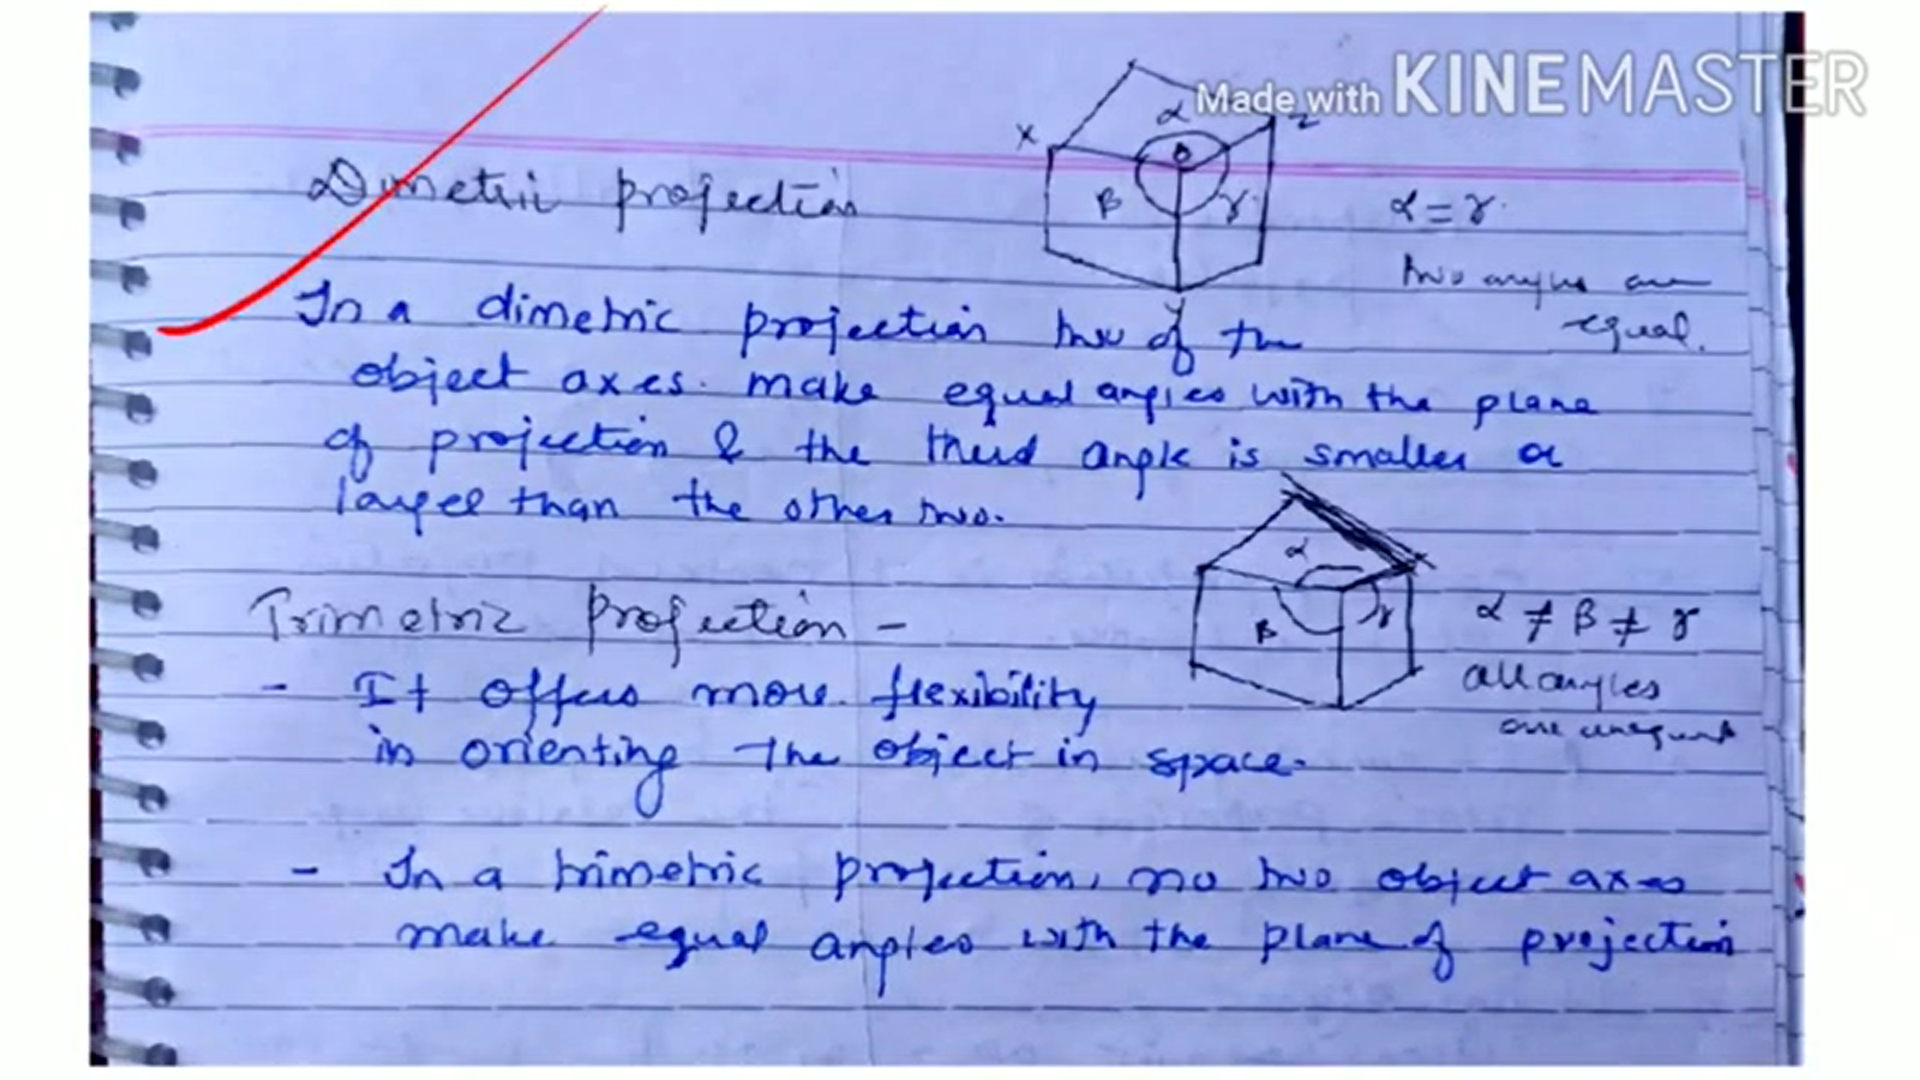 Made with KINEMASTER
X
α
Z
O
β
γ
Y
Dimetric projection
α = γ
two angles are
equal.
In a dimetric projection two of the
object axes make equal angles with the plane
of projection & the third angle is smaller or
larger than the other two.
Trimetric Projection -
α
β
γ
α ≠ β ≠ γ
all angles
are unequal
- It offers more flexibility
in orienting the object in space.
- In a trimetric projection, no two object axes
make equal angles with the plane of projection